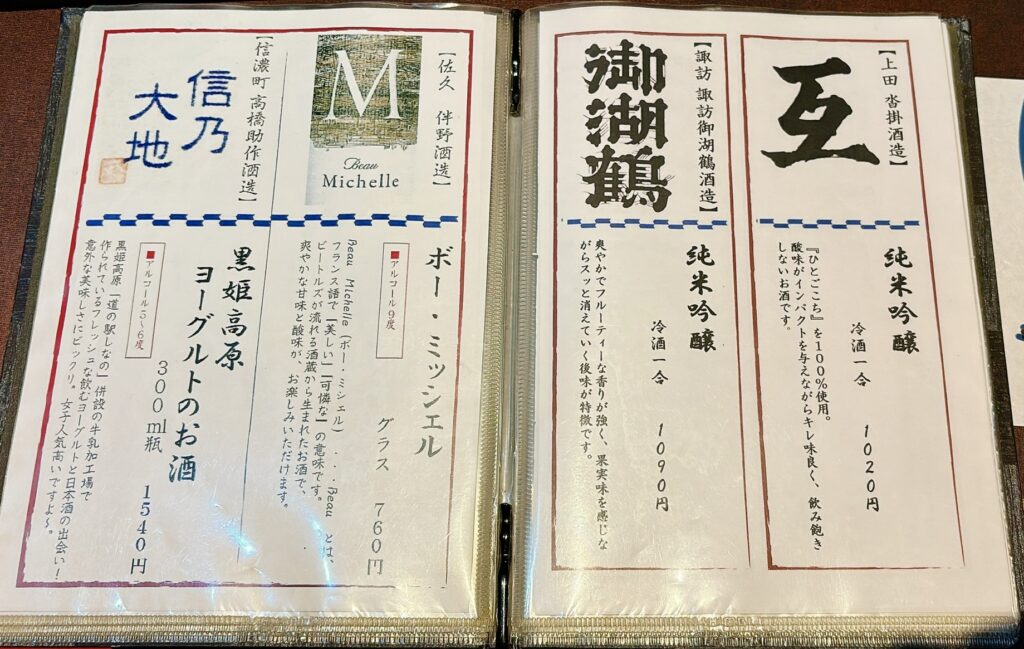 【上田 沓掛酒造】
互
純米吟醸
冷酒一合 1020円
『ひとごこち』を100%使用。
酸味がインパクトを与えながらキレ味良く、飲み飽き
しないお酒です。
【諏訪 諏訪御湖鶴酒造】
御湖鶴
純米吟醸
冷酒一合 1090円
爽やかでフルーティーな香りが強く、果実味を感じな
がらスッと消えていく後味が特徴です。
【佐久 伴野酒造】
M
Beau
Michelle
ボー・ミッシェル
■アルコール9度
グラス 760円
Beau Michelle（ボー・ミシェル）・・・Beau とは、
フランス語で「美しい」「可憐な」の意味です。
ビートルズが流れる酒蔵から生まれたお酒で、
爽やかな甘味と酸味が、お楽しみいただけます。
【信濃町 高橋助作酒造】
信乃
大地
黒姫高原
ヨーグルトのお酒
■アルコール5～6度
300ml瓶 1540円
黒姫高原「道の駅しなの」併設の牛乳加工場で
作られているフレッシュな飲むヨーグルトと日本酒の出会い！
意外な美味しさにビックリ。女子人気高いですよ～。